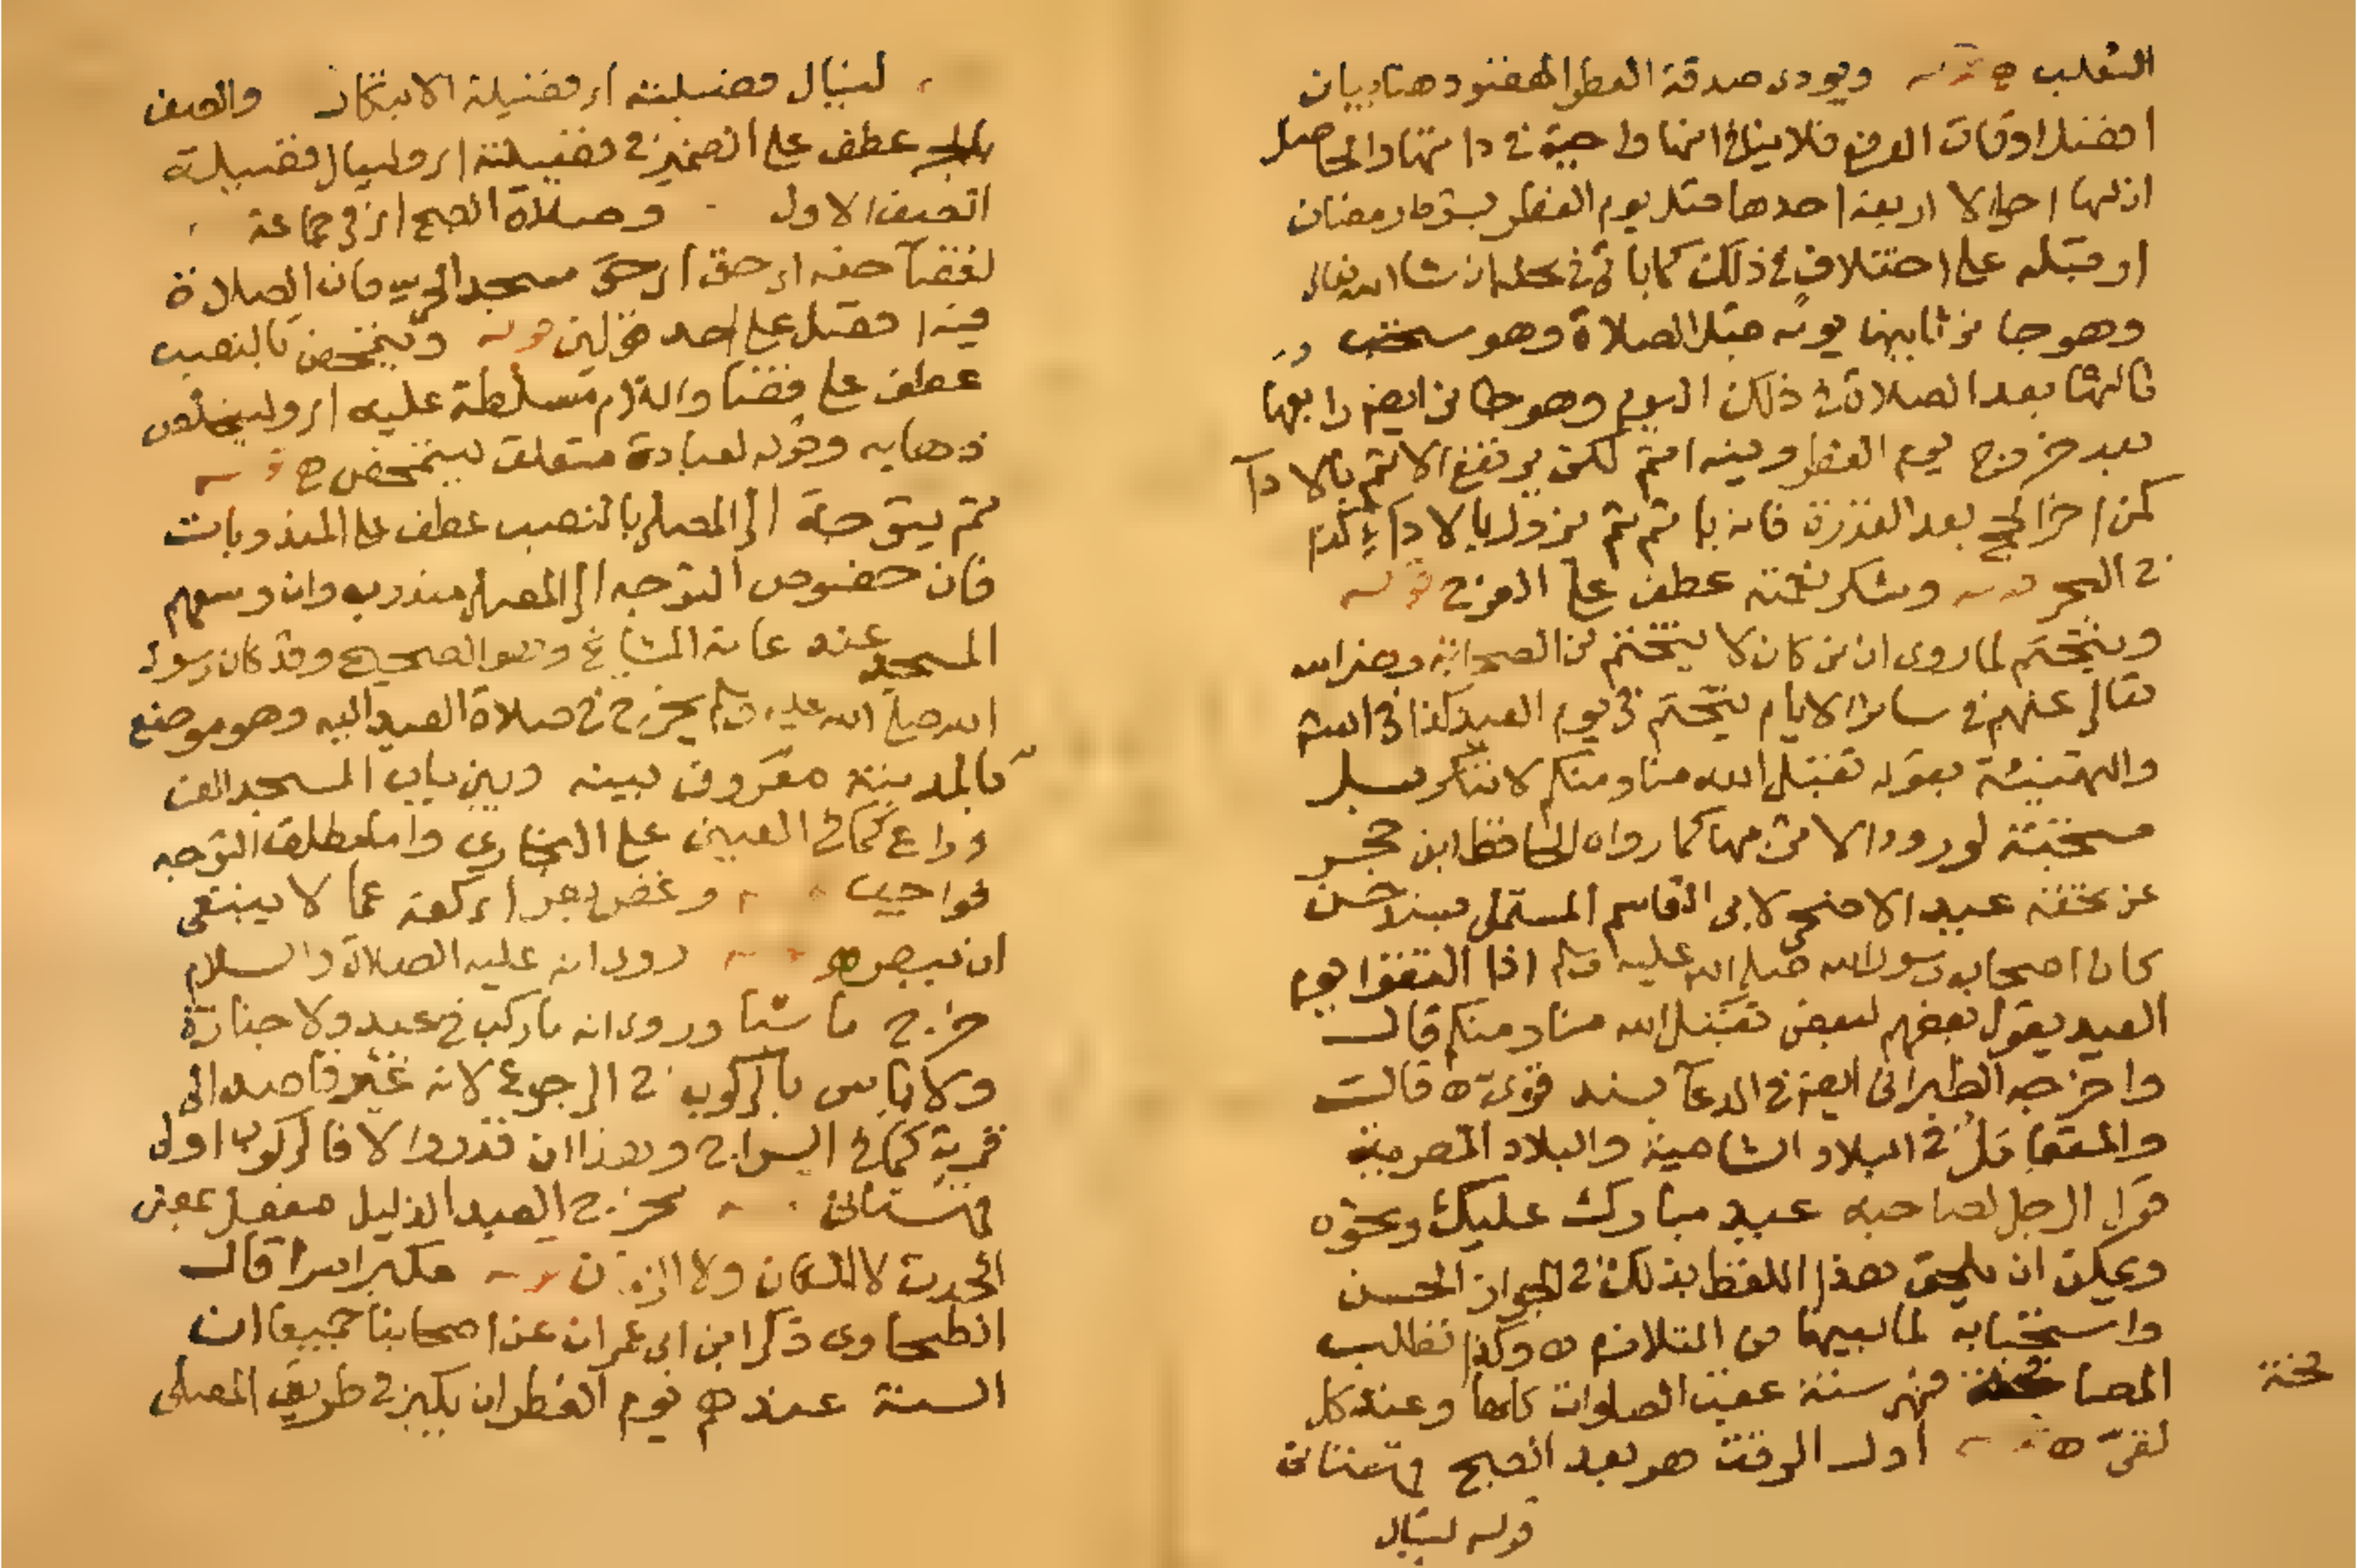 التعلب ه قوله ويودى صدقة الفطر المقصود هنا بيان
افضل اوقات الدفع فلا ينافي انها واجبة في ذاتها والحاصل
ان لها احوالا اربعة احدها قبل يوم الفطر بشرط رمضان
او قبله على اختلاف في ذلك كما ياتي في محله ان شا الله تعالى
وهو جا ئز ثانيها يومه قبل الصلاة وهو مستحب
ثالثها بعد الصلاة في ذلك اليوم وهو جائز ايضا رابعها
بعد خروج يوم الفطر وفيه اثم لكن يرتفع الاثم بالادآ
كمن اخر الحج بعد القدرة فانه ياثم ثم يزول بالادآء كذا
في البحر قوله وشكر نعمته عطف على الفرح قوله
ويتختم لما روى ان من كان لا يتختم من الصحابة رضي الله
تعالى عنهم في سائر الايام يتختم في يوم العيد كذا في
والتهنئة بقوله تقبل الله منا ومنكم لا تنكر بل
مستحبة لورود الاثر بها كما رواه الحافظ ابن حجر
عن تحفة عيد الاضحى لابي القاسم المستملي بسند حسن
كان اصحاب رسول الله صلى الله عليه وسلم اذا التقوا يوم
العيد يقول بعضهم لبعض تقبل الله منا ومنكم قال
واخرجه الطبراني ايضا في الدعآ بسند قوى ه قالت
والمتعامل في البلاد الشامية والبلاد المصرية
قول الرجل لصاحبه عيد مبارك عليك ونحوه
ويمكن ان يلحق هذا اللفظ بذلك في الجواز الحسن
واستحبابه لما بينهما من التلازم ه وكذا تطلب
المصافحة فهي سنة عقب الصلوات كلها وعند كل
لقي ه قوله اول الوقت هو بعد الصبح قهستاني
قوله لينال
لينال فضيلته اي فضيلة الابتكار والصف
بالجر عطف على الضمير في فضيلته اي ولينال فضيلة
الصف الاول وصلاة الصبح اي في جماعة
لقضآ حقه اي حق اي حق مسجد الحي فان الصلاة
فيه افضل على احد قولين قوله ويتمحض بالنصب
عطف على قضا واللام مسلطة عليه اي وليخلص
ذهابه وقوله لعبادة متعلق بيتمحض ه قوله
ثم يتوجه الى المصلى بالنصب عطف على المندوبات
فان خصوص التوجه الى المصلى مندوب وان وسعهم
المسجد عند عامة المشايخ وهو الصحيح وقد كان رسول
الله صلى الله عليه وسلم يخرج في صلاة العيد اليه وهو موضع
بالمدينة معروف بينه وبين باب المسجد الف
ذراع كما في العيني على البخاري واما مطلق التوجه
فواجب وغض بصر اي كفه عما لا ينبغي
ان يبصر ه روى انه عليه الصلاة والسلام
خرج ما شيا وروى انه ما ركب في عيد ولا جنازة
ولا باس بالركوب في الرجوع لانه غير قاصد الى
قربة كما في السراج وهذا ان قدر والا فالركوب اولى
قهستاني مخرج العبد الذليل مفعل بمعنى
الحدث لا المكان ولا الزمان قوله مكبرا سرا قال
الطحاوى ذكر ابن ابي عمران عن اصحابنا جميعا ان
السنة عندهم يوم الفطر ان يكبر في طريق المصلى